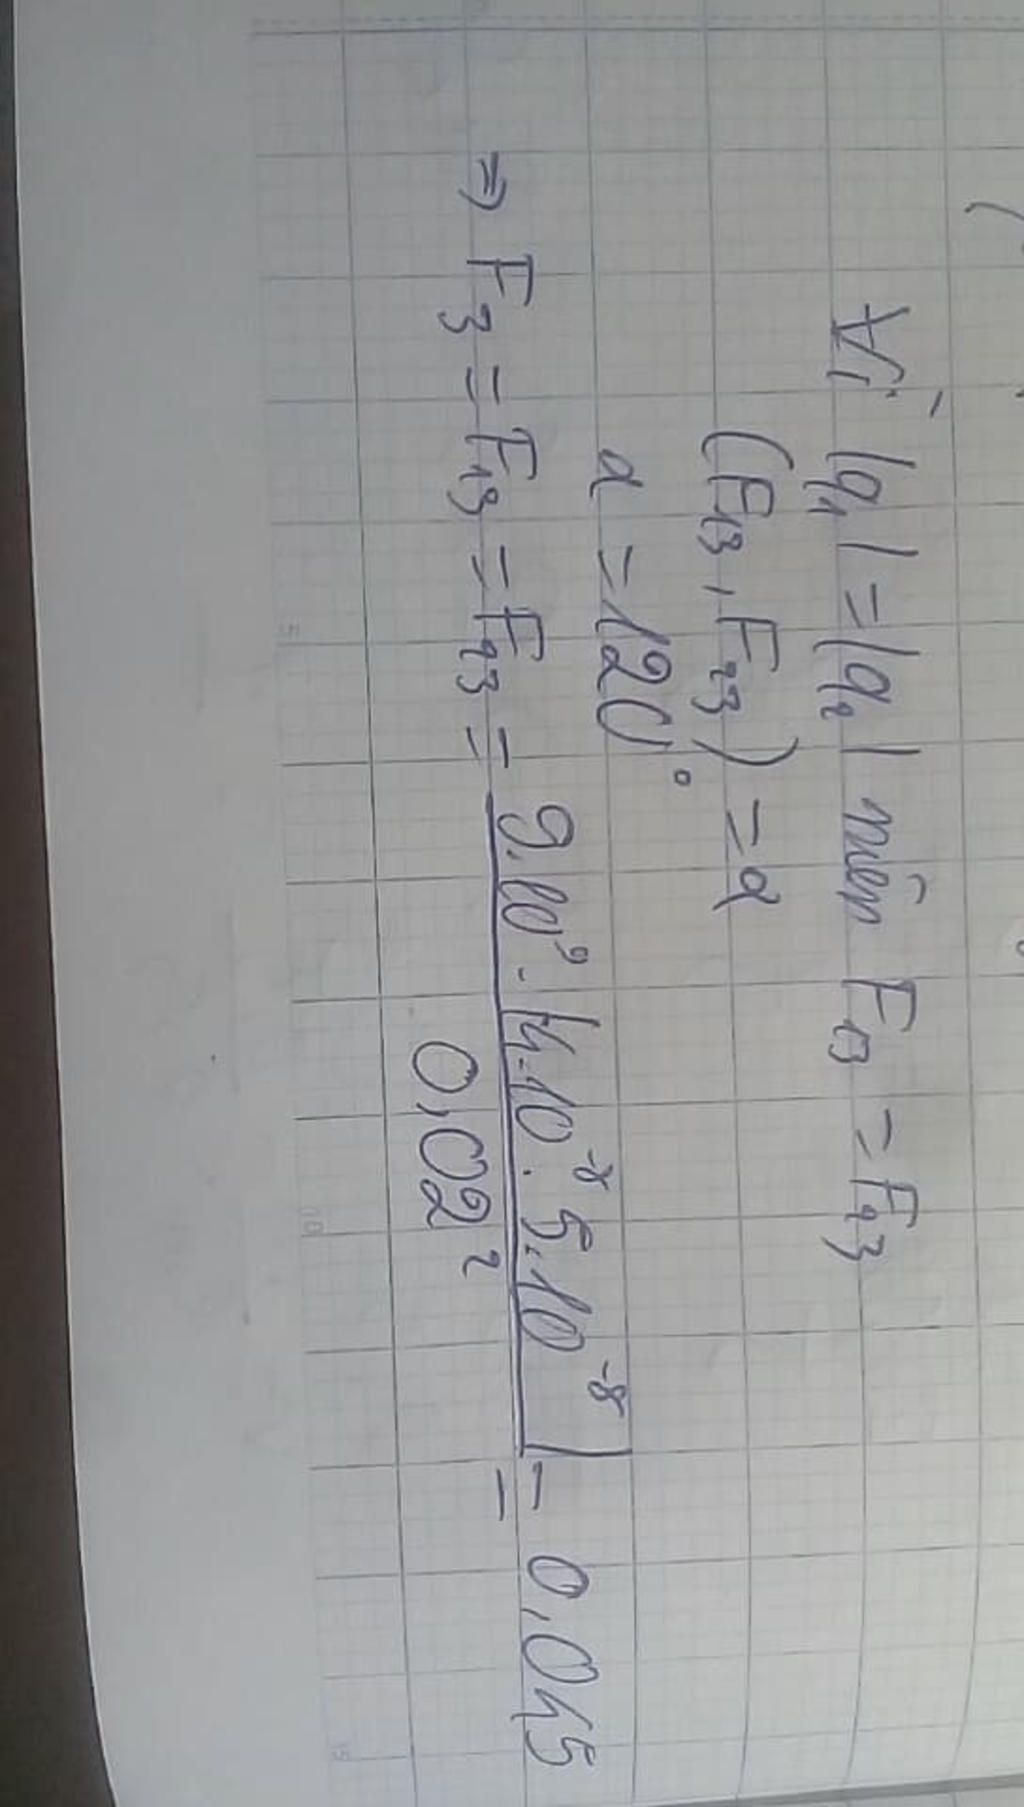 Vì |q₁| = |q₂| nên F₁₃ = F₂₃
(F₁₃, F₂₃) = α
α = 120°
⇒ F₃ = F₁₃ = F₂₃ = 9.10⁹ . |4.10⁻⁸ . 5.10⁻⁸| / 0,02² = 0,045